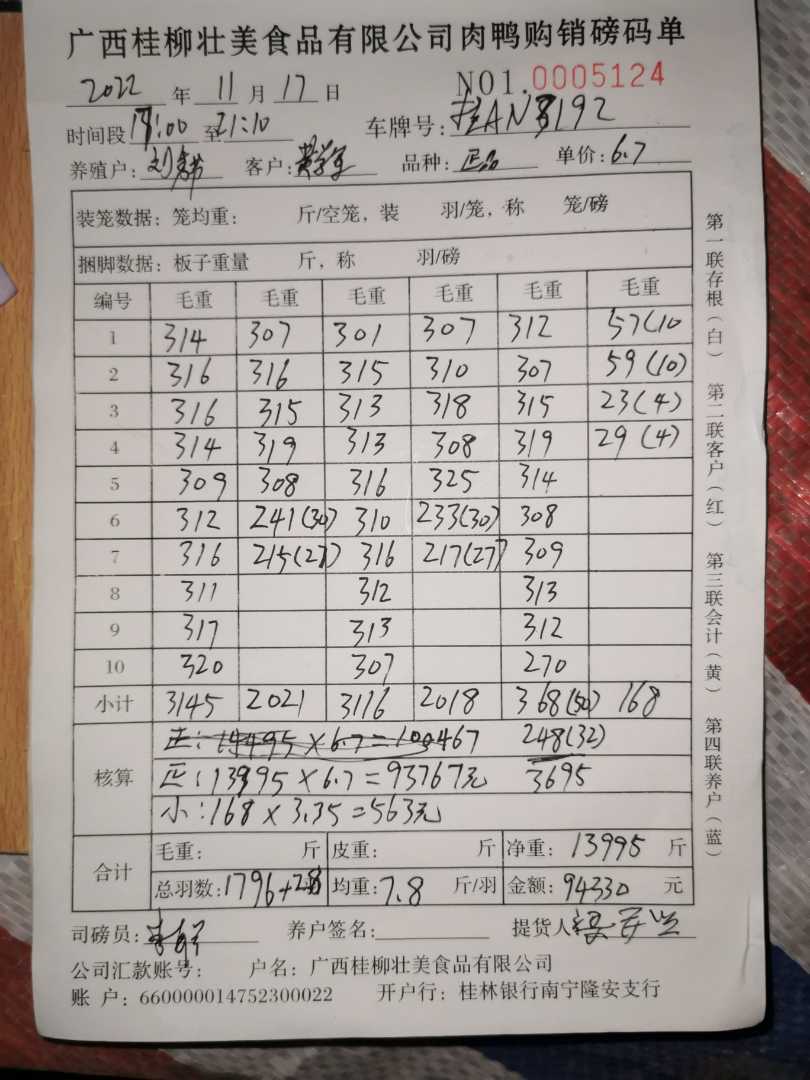 广西桂柳壮美食品有限公司肉鸭购销磅码单
2022 年 11 月 17 日 NO1.0005124
时间段 19:00 至 21:10 车牌号:桂AN3192
养殖户: 客户: 品种:正品 单价:6.7
装笼数据:笼均重: 斤/空笼,装 羽/笼,称 笼/磅
捆脚数据:板子重量 斤,称 羽/磅
编号 毛重 毛重 毛重 毛重 毛重 毛重
1 314 307 301 307 312 57(10
2 316 316 315 310 307 59(10)
3 316 315 313 318 315 23(4)
4 314 319 313 308 319 29(4)
5 309 308 316 325 314
6 312 241(30) 310 233(30) 308
7 316 215(27) 316 217(27) 309
8 311 312 313
9 317 313 312
10 320 307 270
小计 3145 2021 3116 2018 368(50) 168
正:14495×6.7=100467 248(32)
核算 正:13995×6.7=93767元 3695
小:168×3.35=563元
合计 毛重: 斤 皮重: 斤 净重:13995 斤
总羽数:1796+28 均重:7.8 斤/羽 金额:94330 元
司磅员: 养户签名: 提货人
公司汇款账号: 户名:广西桂柳壮美食品有限公司
账 户:660000014752300022 开户行:桂林银行南宁隆安支行
第一联存根(白) 第二联客户(红) 第三联会计(黄) 第四联养户(蓝)